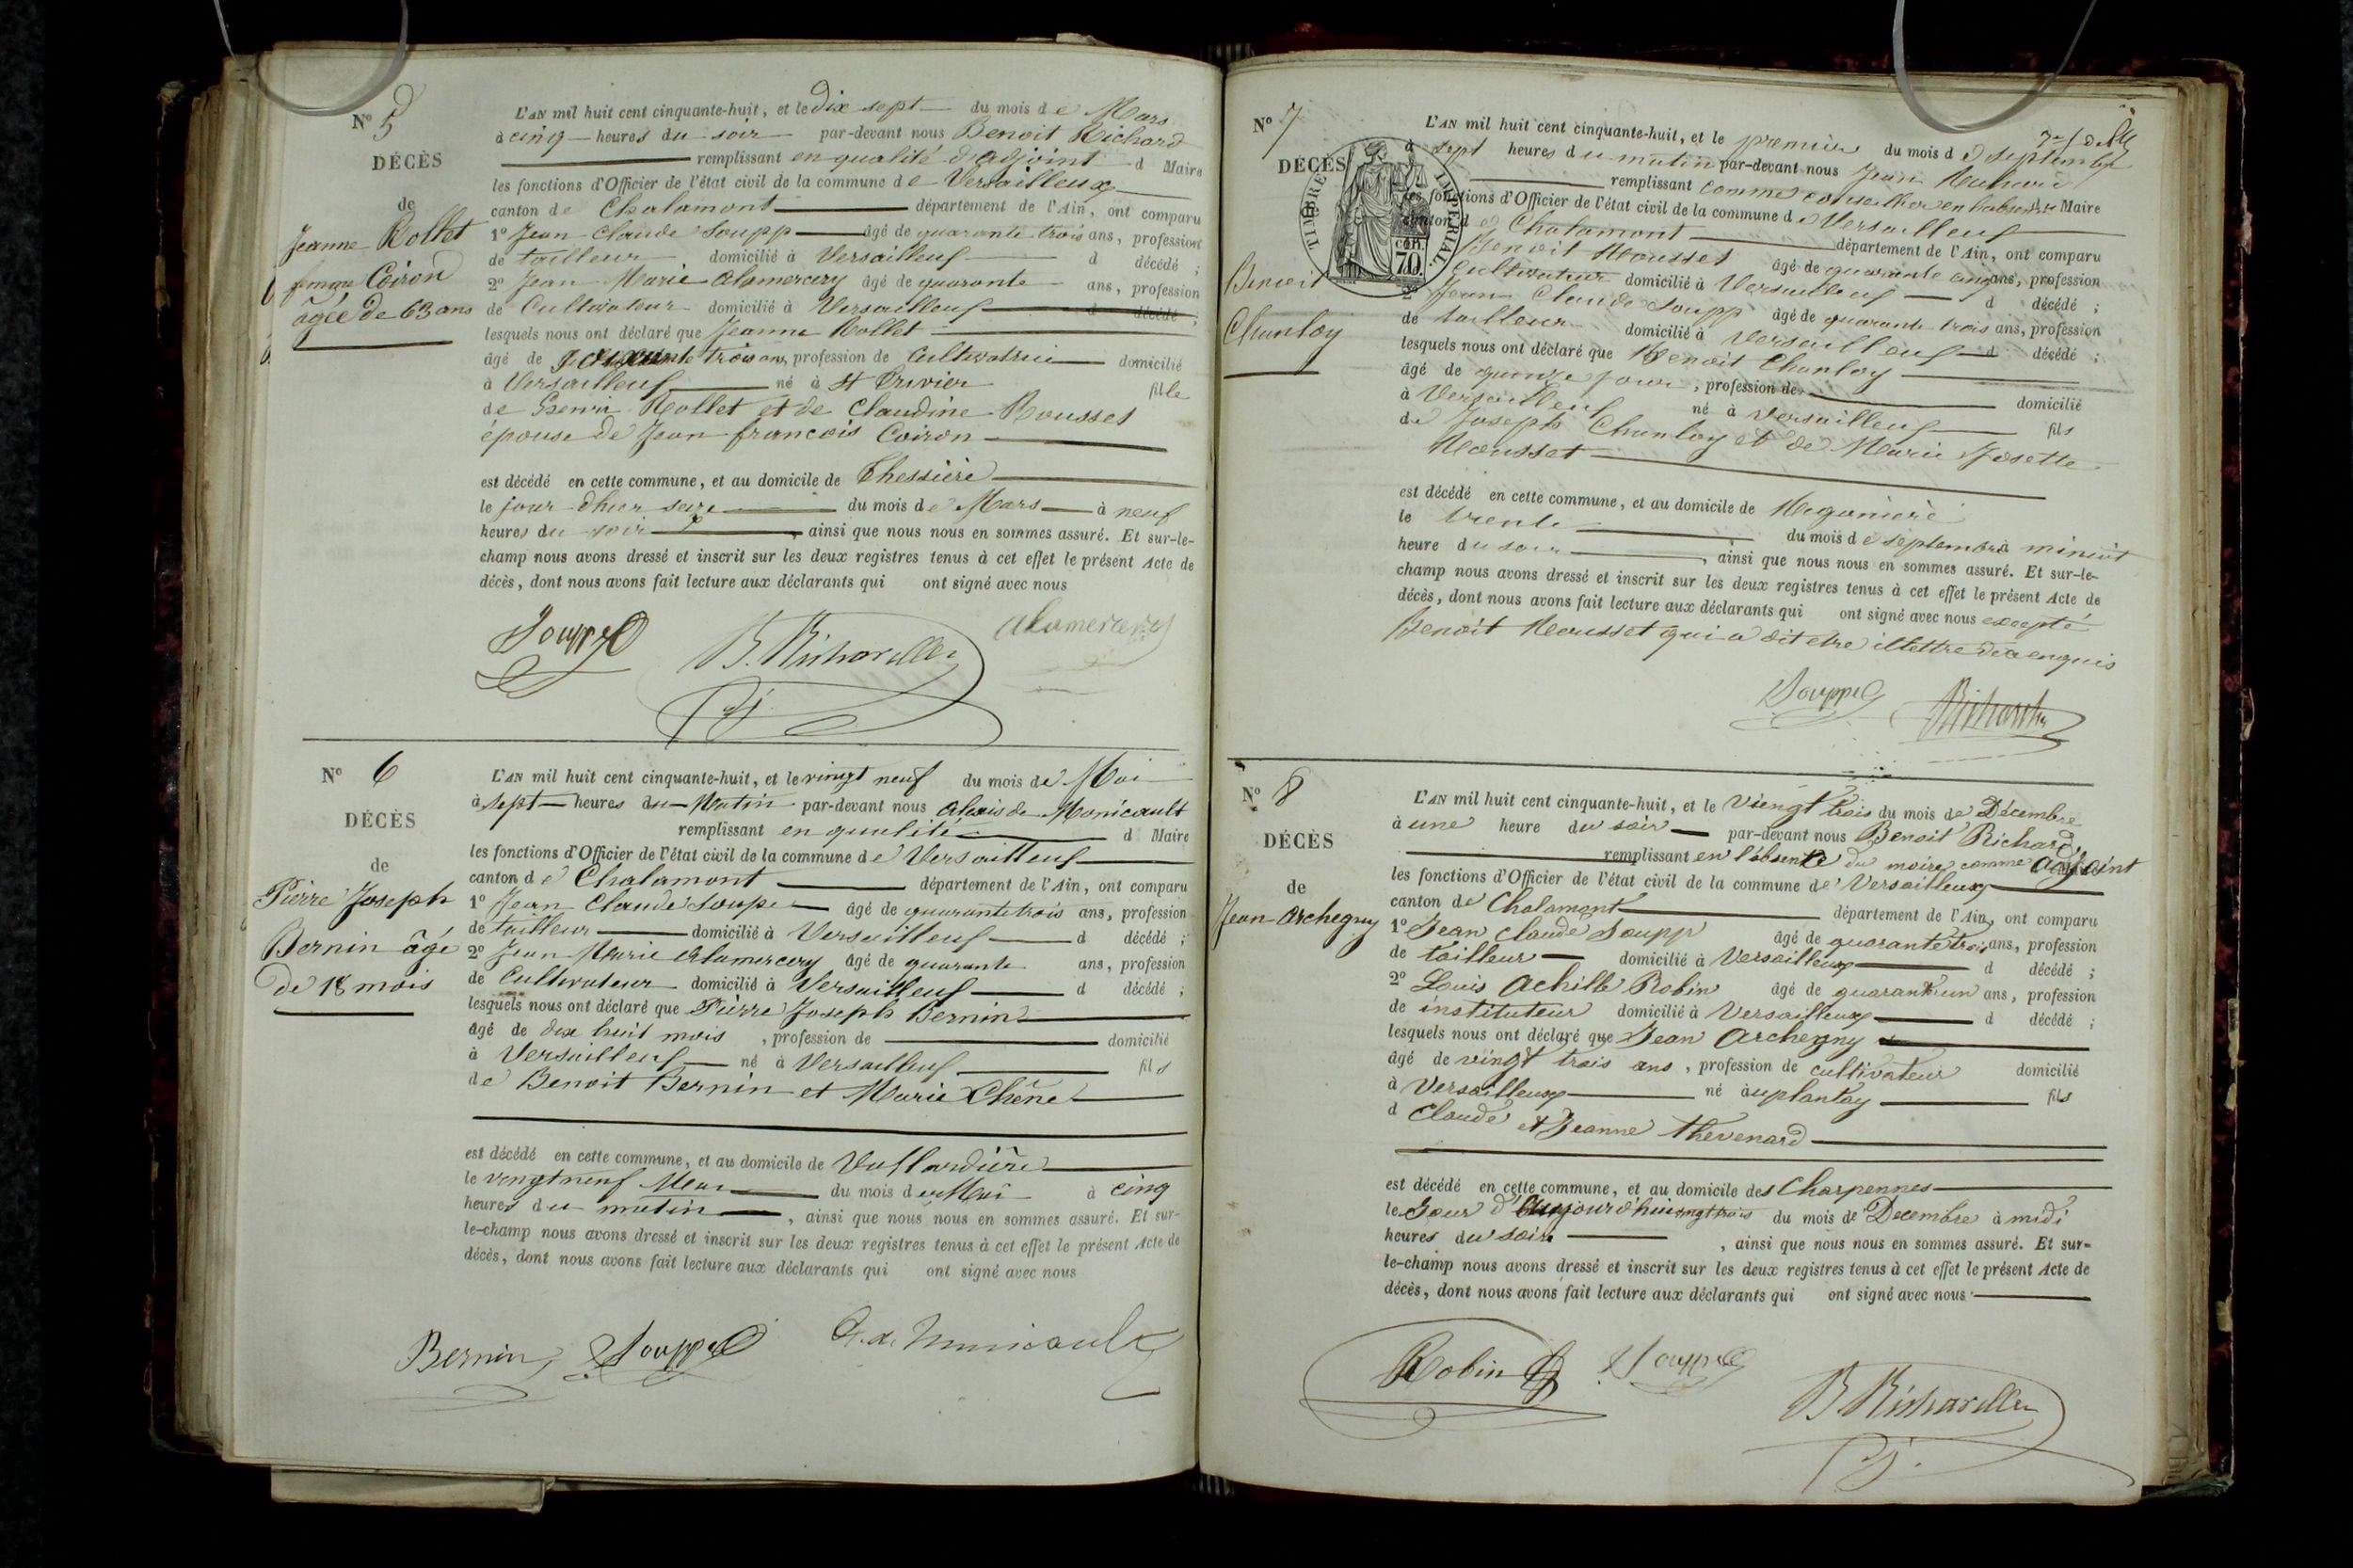 N° 5
DÉCÈS
de
Jeanne Rollet
fme Coiron
âgée de 63 ans
L'AN mil huit cent cinquante-huit, et le dix sept du mois de Mars
à cinq heures du soir par-devant nous Benoit Richard
remplissant en qualité d'adjoint d Maire
les fonctions d'Officier de l'état civil de la commune de Versailleux
canton de Chalamont département de l'Ain, ont comparu
1° Jean Claude Soupp âgé de quarante trois ans, profession
de tailleur domicilié à Versailleux d décédé ;
2° Jean Marie Alamercery âgé de quarante ans, profession
de Cultivateur domicilié à Versailleux d décédé ;
lesquels nous ont déclaré que Jeanne Rollet
âgé de soixante trois ans, profession de Cultivatrice domicilié
à Versailleux né à St Trivier fille
de Rollet et de Claudine Rousset
épouse de Jean francois Coiron
est décédé en cette commune, et au domicile de Thessière
le jour d'hier seize du mois de Mars à neuf
heures du soir ainsi que nous nous en sommes assuré. Et sur-le-
champ nous avons dressé et inscrit sur les deux registres tenus à cet effet le présent Acte de
décès, dont nous avons fait lecture aux déclarants qui ont signé avec nous
Soupp B. Richard alamercery
N° 6
DÉCÈS
de
Pierre Joseph
Bernin âgé
de 18 mois
L'AN mil huit cent cinquante-huit, et le vingt neuf du mois de Mai
à sept heures du Matin par-devant nous Alexis de Monicault
remplissant en qualité d Maire
les fonctions d'Officier de l'état civil de la commune de Versailleux
canton de Chalamont département de l'Ain, ont comparu
1° Jean Claude Soupe âgé de quarante trois ans, profession
de tailleur domicilié à Versailleux d décédé ;
2° Jean Marie Alamercery âgé de quarante ans, profession
de Cultivateur domicilié à Versailleux d décédé ;
lesquels nous ont déclaré que Pierre Joseph Bernin
âgé de dix huit mois , profession de domicilié
à Versailleux né à Versailleux fils
de Benoit Bernin et Marie Chêne
est décédé en cette commune, et au domicile de
le vingt neuf du mois de Mai à cinq
heures du matin , ainsi que nous nous en sommes assuré. Et sur-
le-champ nous avons dressé et inscrit sur les deux registres tenus à cet effet le présent Acte de
décès, dont nous avons fait lecture aux déclarants qui ont signé avec nous
Bernin Soupp A. de Monicault
N° 7
DÉCÈS
Benoit
Chanloy
TIMBRE IMPERIAL
70.
L'AN mil huit cent cinquante-huit, et le premier du mois de septembre
à sept heures du matin par-devant nous Jean Richard
remplissant comme conseiller en l'absence Maire
les fonctions d'Officier de l'état civil de la commune de Versailleux
canton de Chalamont département de l'Ain, ont comparu
Benoit Mousset âgé de quarante cinq ans, profession
Cultivateur domicilié à Versailleux d décédé ;
2° Jean Claude Soupp âgé de quarante trois ans, profession
de tailleur domicilié à Versailleux d décédé ;
lesquels nous ont déclaré que Benoit Chanloy
âgé de quinze jours , profession de domicilié
à Versailleux né à Versailleux fils
de Joseph Chanloy et de Marie Josette
Mousset
est décédé en cette commune, et au domicile de
le trente du mois de septembre à minuit
heure du soir , ainsi que nous nous en sommes assuré. Et sur-le-
champ nous avons dressé et inscrit sur les deux registres tenus à cet effet le présent Acte de
décès, dont nous avons fait lecture aux déclarants qui ont signé avec nous excepté
Benoit Mousset qui a dit etre illettre de ce enquis
Soupp Richard
N° 8
DÉCÈS
de
Jean Archegny
L'AN mil huit cent cinquante-huit, et le viengt trois du mois de Décembre
à une heure du soir par-devant nous Benoit Richard,
remplissant en l'absente du maire comme adjoint
les fonctions d'Officier de l'état civil de la commune de Versailleux
canton de Chalamont département de l'Ain, ont comparu
1° Jean Claude Soupp âgé de quarante trois ans, profession
de tailleur domicilié à Versailleux d décédé ;
2° Louis Achille Robin âgé de quarant un ans, profession
de instituteur domicilié à Versailleux d décédé ;
lesquels nous ont déclaré que Jean Archegny
âgé de vingt trois ans , profession de cultivateur domicilié
à Versailleux né au plantay fils
d Claude et Jeanne thevenard
est décédé en cette commune, et au domicile des Charpennes
le Jour d'Aujourd'hui vingt trois du mois de Decembre à midi
heures du soir , ainsi que nous nous en sommes assuré. Et sur-
le-champ nous avons dressé et inscrit sur les deux registres tenus à cet effet le présent Acte de
décès, dont nous avons fait lecture aux déclarants qui ont signé avec nous
Robin Soupp B Richard